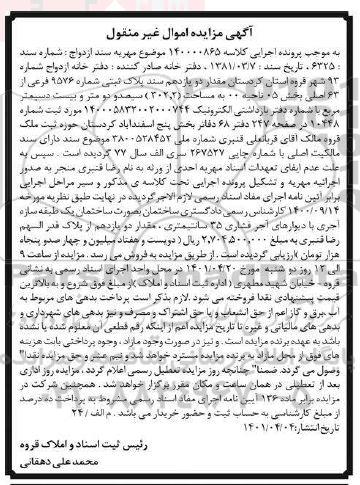 آگهی مزایده اموال غیر منقول
به موجب پرونده اجرایی کلاسه ۱۴۰۰۰۰۸۶۵ موضوع مهریه سند ازدواج : شماره سند
: ۶۳۲۵ ، تاریخ سند : ۱۳۸۱/۰۳/۰۷ ، دفتر خانه صادر کننده : دفتر خانه ازدواج شماره
۹۳ شهر قروه استان کردستان مقدار دو یازدهم سند پلاک ثبتی شماره ۹۵۷۶ فرعی از
۶۳ اصلی بخش ۰۵ ناحیه ۰۰ به مساحت (۳۰۲,۲) سیصدو دو متر و بیست دسیمتر
مربع با شماره دفتر بازداشتی الکترونیک ۱۴۰۰۰۵۸۳۳۰۰۲۰۰۰۷۴۴ مورد ثبت شماره
۱۰۴۴۸ در صفحه ۲۴۷ دفتر ۶۸ دفاتر بخش پنج اسفندآباد کردستان حوزه ثبت ملک
قروه مالک آقای قربانعلی قنبری شماره ملی ۳۸۰۰۵۳۸۴۵۲ موضوع سند دارای سند
مالکیت اصلی با شماره چاپی ۲۶۷۵۳۷ سری الف سال ۷۷ گردیده است . سپس به
علت عدم ایفای تعهدات اسناد مهریه احدی از ورثه به نام رضا قنبری منجر به صدور
اجرائیه مهریه و تشکیل پرونده اجرایی تحت کلاسه ی مذکور و سیر مراحل اجرایی
برابر آئین نامه اجرای مفاد اسناد رسمی لازم الاجرا گردیده در نهایت طبق نظریه مورخه
۱۴۰۰/۰۹/۱۴ کارشناس رسمی دادگستری ساختمان بصورت ساختمان یک طبقه سازه
آجری با دیوارهای آجر فشاری ۳۵ سانتیمتری ، مقدار دو یازدهم از پلاک قدر السهم
رضا قنبری به مبلغ ۲,۷۰۴,۵۰۰,۰۰۰ ریال ( دویست و هفتاد میلیون و چهار صدو پنجاه
هزار تومان )ارزیابی گردیده است . از طریق مزایده به فروش می رسد . مزایده از ساعت ۹
الی ۱۲ روز دو شنبه مورخ ۱۴۰۱/۰۴/۲۰ در محل واحد اجرای اسناد رسمی به نشانی
قروه - خیابان شهید مطهری ( اداره ثبت اسناد و املاک )از مبلغ فوق شروع و به بالاترین
قیمت پیشنهادی نقدا فروخته می شود .لازم بذکر است پرداخت بدهی های مربوط به
آب ،برق و گاز اعم از حق انشعاب و یا حق اشتراک و مصرف و نیز بدهی های شهرداری و
بدهی های مالیاتی و غیره تا تاریخ مزایده اعم از اینکه رقم قطعی آن معلوم شده یا نشده
باشد به عهده برنده مزایده است . و نیز در صورت وجود مازاد ، وجوه پرداختی بابت هزینه
های فوق از محل مازاد به برنده مزایده مسترد خواهد شد و نیم عشر و حق مزایده نقدا"
وصول می گردد. ضمنا" چنانچه روز مزایده تعطیل رسمی اعلام گردد ، مزایده روز اداری
بعد از تعطیلی در همان ساعت و مکان مقرر برگزار خواهد شد . همچنین شرکت در
مزایده برابر ماده ۱۳۶ آیین نامه اجرای مفاد اسناد رسمی مشروط به پرداخت ده درصد
از مبلغ کارشناسی به حساب ثبت و حضور خریدار می باشد . م الف / ۲۴
تاریخ انتشار:۱۴۰۱/۰۴/۰۴
رئیس ثبت اسناد و املاک قروه
محمدعلی دهقانی